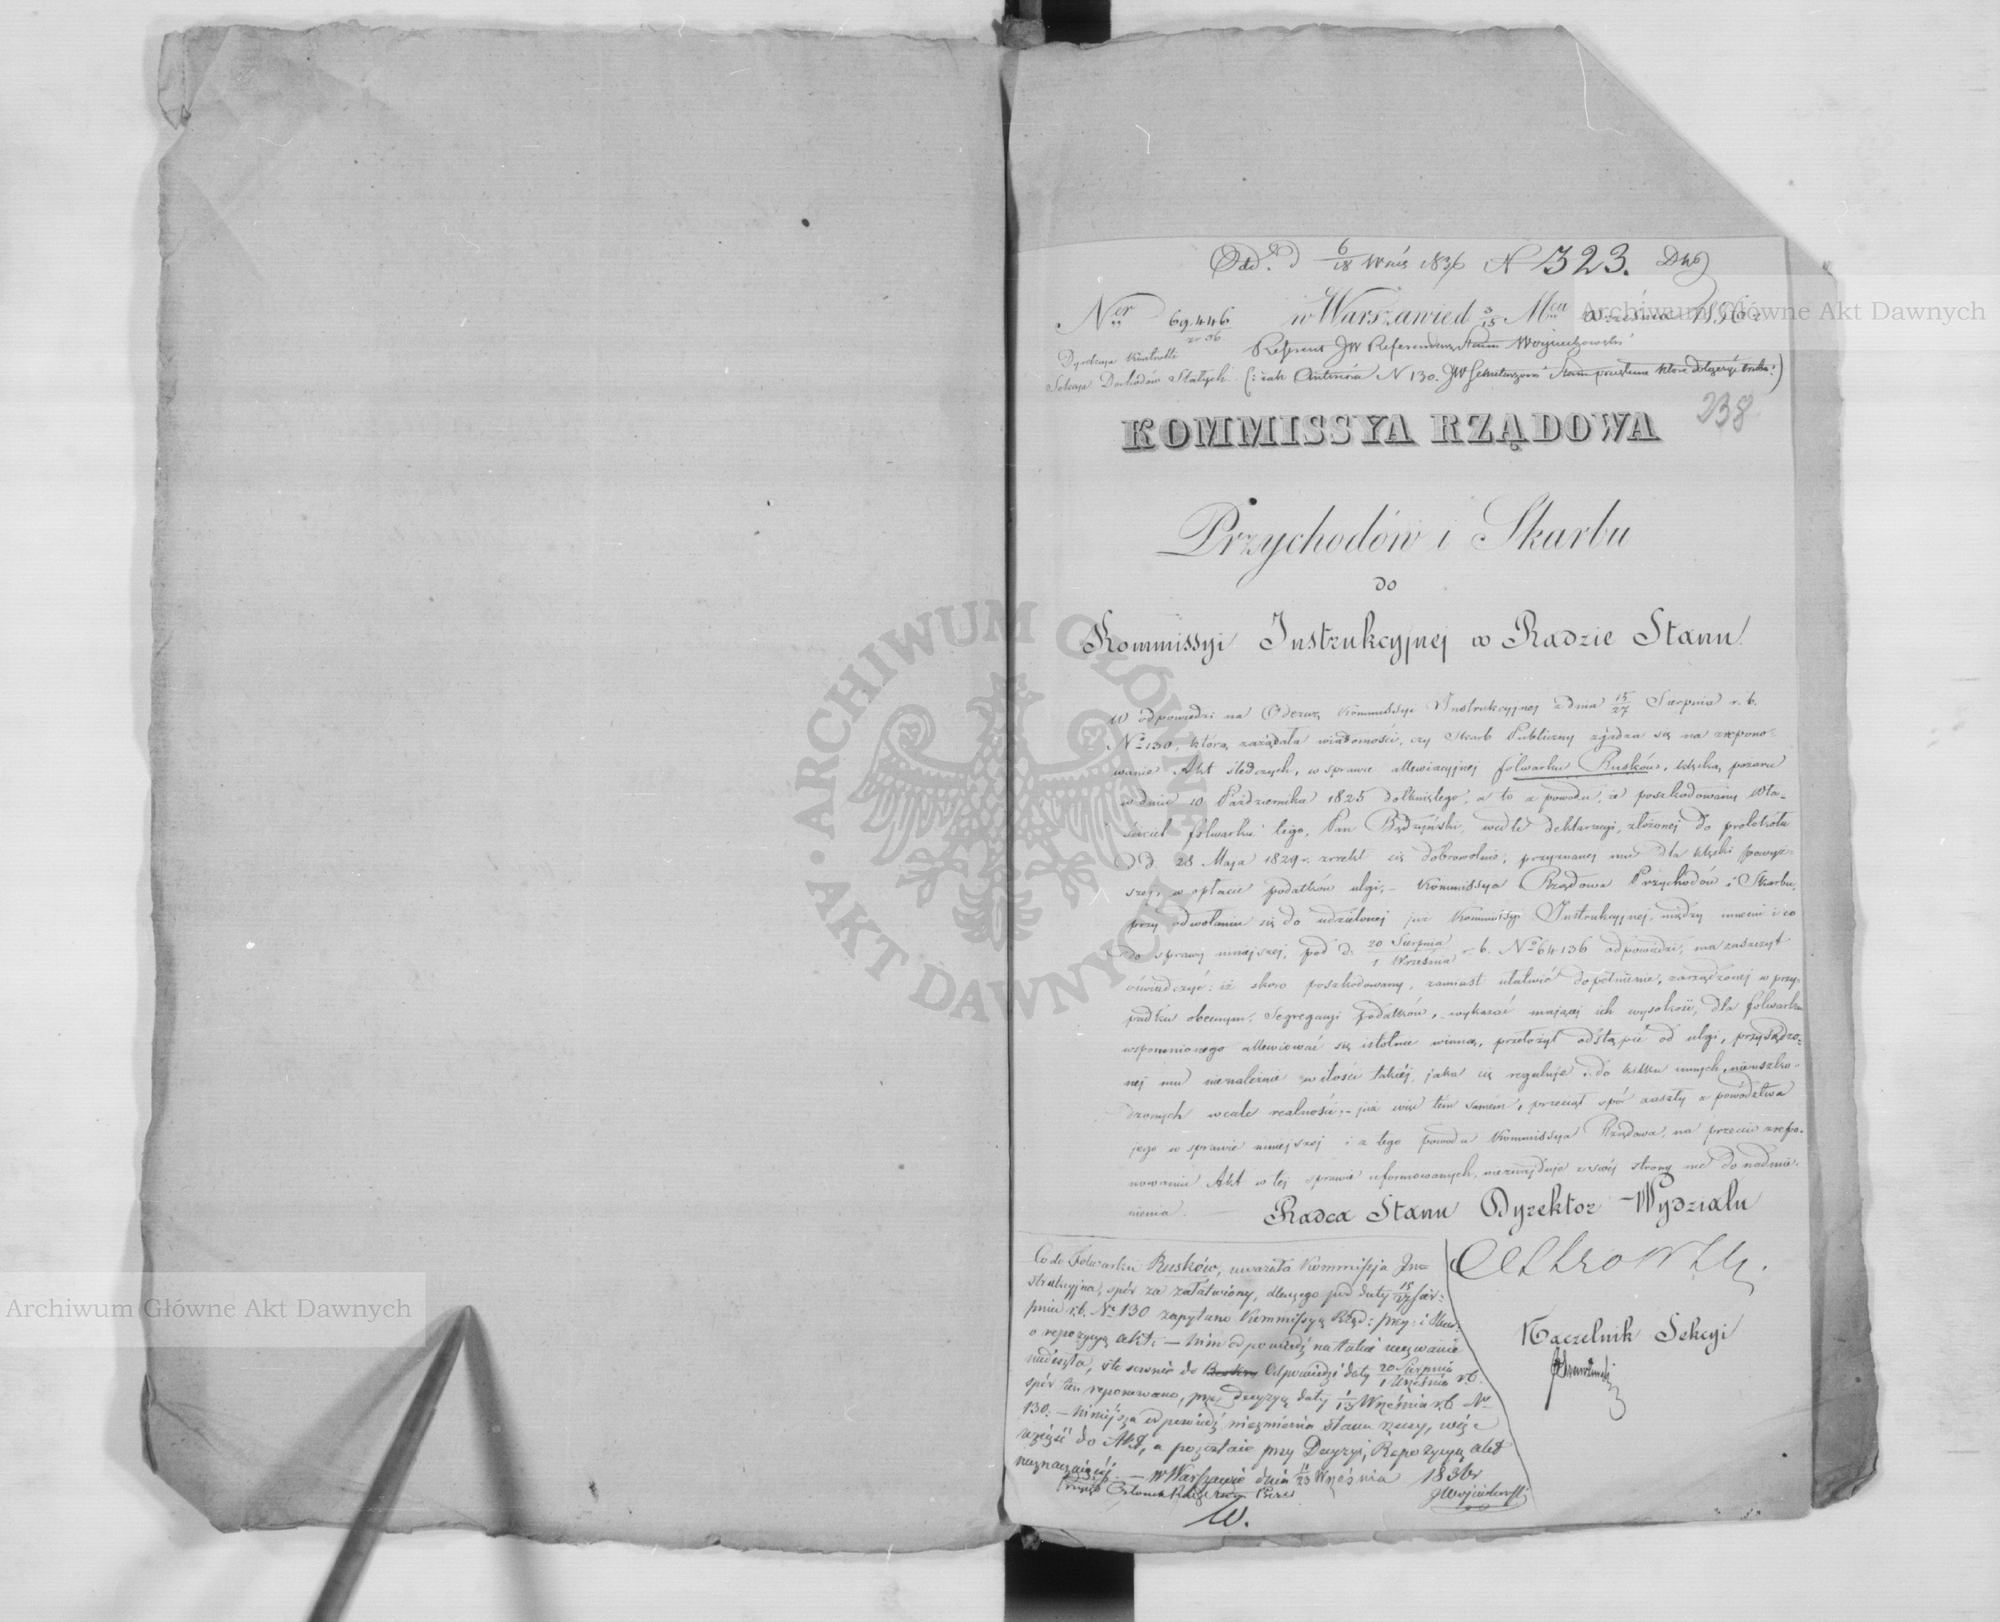 6/18 Wrześ 1836 N 323.
Ner 69,446 w Warszawie d 3/15 Mca Września 1836 r.
Dyrekcya Kontrolli Referent JW Referendarz Stanu Woyciechowski
Sekcya Dochodów Stałych (: zak N 130. JW
238
KOMMISSYA RZĄDOWA
Przychodów i Skarbu
do
Kommissyi Instrukcyjnej w Radzie Stanu
W odpowiedzi na Odezwę Kommissyi Instrukcyjnej z dnia 15/27 Sierpnia r. b.
No 130, którą zażądała wiadomości, czy Skarb Publiczny zgadza się na zrepono-
wanie Akt śledczych, w sprawie allewiacyjnej folwarku Rusków, klęską pożaru
w dniu 10 Października 1825 dotkniętego, a to z powodu, że poszkodowany Wła-
ściciel folwarku tego, Pan Bądzyński, wedle deklaracyi, złożonej do protokołu
d d. 28 Maja 1829 r. zrzekł się dobrowolnie, przyznanej mu dla klęski powyż-
szej, w opłacie podatków ulgi, – Kommissya Rządowa Przychodów i Skarbu,
przy odwołaniu się do udzielonej już Kommissyi Instrukcyjnej, między innemi i co
do sprawy niniejszej, pod d. 20 Sierpnia/1 Września r. b. No 64,136 odpowiedzi, ma zaszczyt
oświadczyć: iż skoro poszkodowany, zamiast ułatwić dopełnienie, zarządzonej w przy-
padku obecnym, Segregacyi podatków, wykazać mającej ich wysokość, dla folwarku
wspomnionego allewiować się istotnie winną, przełożył odstąpić od ulgi, przysądzo-
nej mu nienależnie w ilości takiej, jaka się reguluje do kilku innych nieuszko-
dzonych wcale realności, – już więc tém samém, przeciął spór zaszły z powództwa
jego w sprawie niniejszej i z tego powodu Kommissya Rządowa, na przeciw zrepo-
nowaniu Akt w tej sprawie uformowanych, nieznajduje z swéj strony nic do nadmie-
nienia.
Radca Stanu Dyrektor Wydziału
Naczelnik Sekcyi
Co do Folwarku Rusków, uważała Kommissja In-
strukcyjna, spór za załatwiony, dlaczego pod datą 15/27 Sier-
pnia r.b. No 130 zapytano Kommissyą Rząd: Przy: i Skar:
o repozycyą akt; – Nim odpowiedź na takie wezwanie
nadeszła, stosownie do Odpowiedzi daty 20 Sierpnia/1 Września r.b.
spór ten reponowano, przez decyzyą daty 1/13 Września r.b. No
130. – Niniejsza odpowiedź niezmienia stanu rzeczy, więc
wziąść do Akt, a pozostaie przy Decyzyi, Repozycyą akt
nakazuiącéj. – w Warszawie dnia 11/23 Września 1836 r
JWoyciechowski
W.
Archiwum Główne Akt Dawnych
Archiwum Główne Akt Dawnych
ARCHIWUM GŁÓWNE AKT DAWNYCH